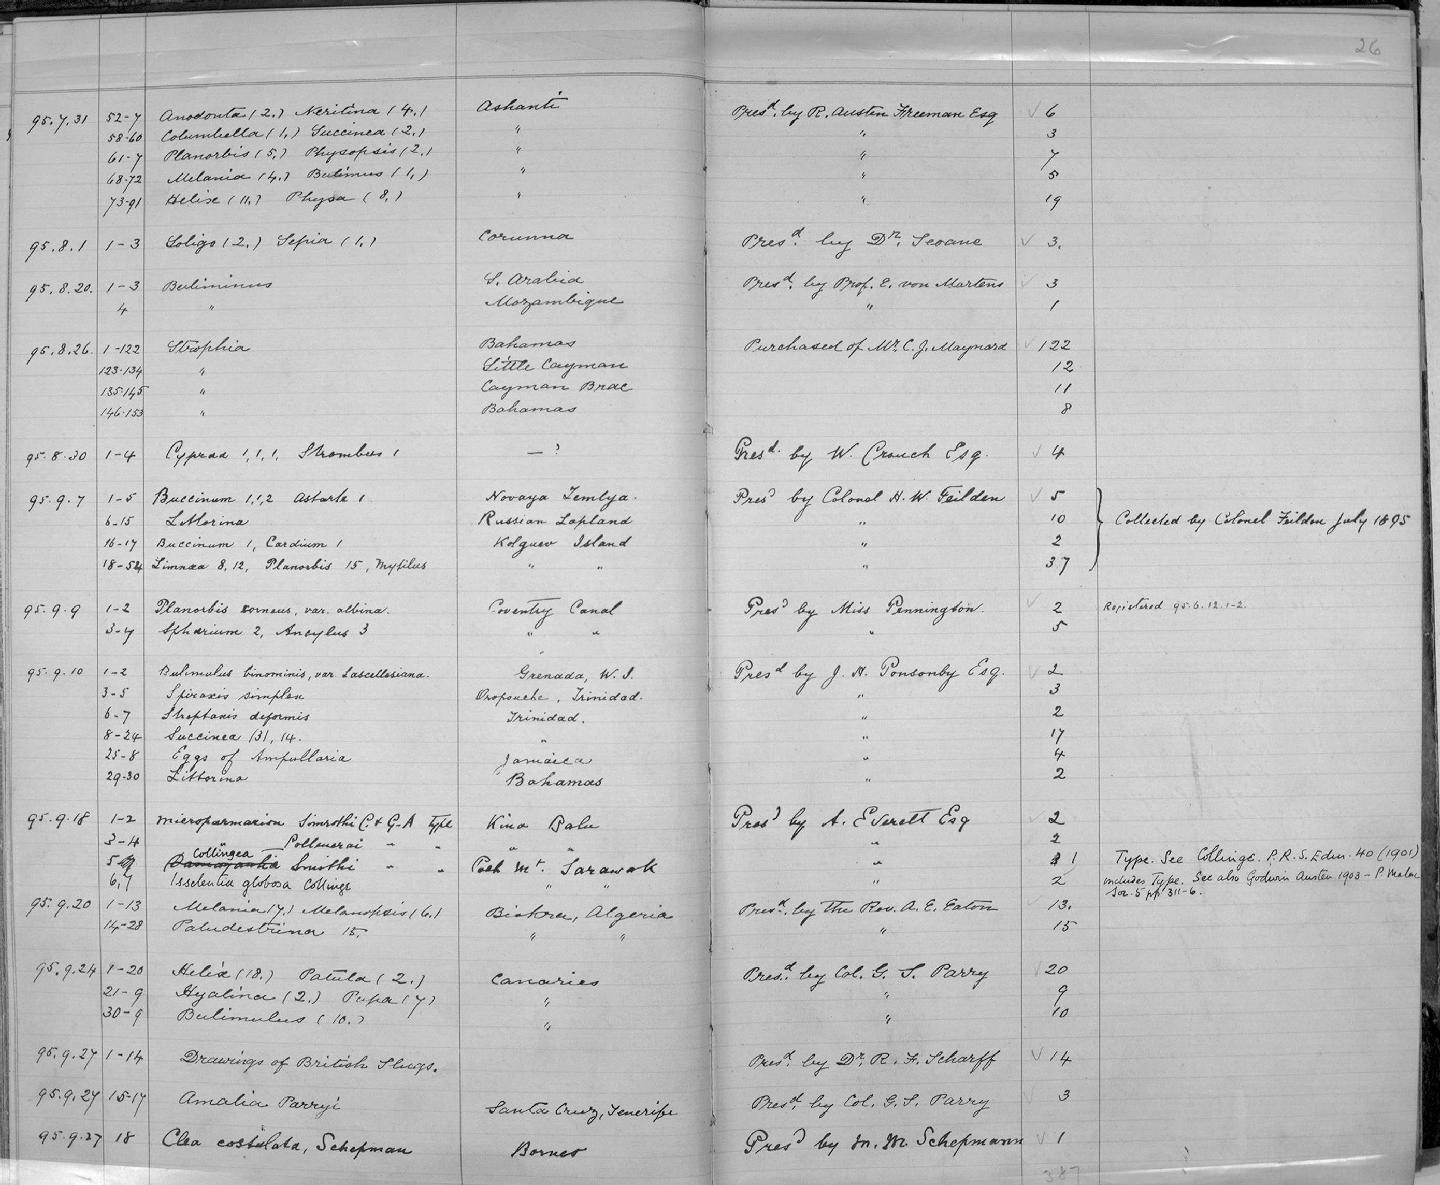 26
95.7.31 52-7 Anodonta (2.) Neritina (4.) Ashanti Presd. by R. Austen Freeman Esq ✓ 6
58-60 Columbella (1.) Succinea (2.) " " 3
61-7 Planorbis (5.) Physopsis (2.) " " 7
68-72 Melania (4.) Bulimus (1.) " " 5
73-91 Helix (11.) Physa (8.) " " 19
95.8.1 1-3 Loligo (2.) Sepia (1.) Corunna Presd. by Dr. Seoane ✓ 3.
95.8.20. 1-3 Buliminus S. Arabia Presd. by Prof. E. von Martens ✓ 3
4 " Mozambique " 1
95.8.26. 1-122 Strophia Bahamas Purchased of Mr. C. J. Maynard ✓ 122
123-134 " Little Cayman 12
135-145 " Cayman Brac 11
146-153 " Bahamas 8
95.8.30 1-4 Cypraa 1,1,1, Strombus 1 — ? Presd. by W. Crouch Esq. ✓ 4
95.9.7 1-5 Buccinum 1,1,2 Astarte 1 Novaya Zemlya. Presd by Colonel H. W. Feilden ✓ 5
6-15 Littorina Russian Lapland " 10 Collected by Colonel Feilden July 1895
16-17 Buccinum 1, Cardium 1 Kolguev Island " 2
18-54 Limnæa 8, 12, Planorbis 15, Mytilus " " " 37
95.9.9 1-2 Planorbis corneus, var. albina. Coventry Canal Presd by Miss Pennington. ✓ 2 Registered 95.6.12.1-2.
3-7 Sphærium 2, Ancylus 3 " " " 5
95.9.10 1-2 Bulimulus binominis, var. Lascellesiana. Grenada, W. I. Presd by J. H. Ponsonby Esq. ✓ 2
3-5 Spiraxis simplex Oropouche, Trinidad. " 3
6-7 Streptaxis deformis Trinidad. " 2
8-24 Succinea (3), 14. " " 17
25-8 Eggs of Ampullaria Jamaica " 4
29-30 Littorina Bahamas " 2
95.9.18 1-2 Microparmarion Simrothi C. & G-A Type Kina Balu Presd by A. Everett Esq ✓ 2
3-4 " Pollonerai " " " " " 2
5 Collingea Damayantia Smithi " " Poeh Mt. Sarawak " 1 Type. See Collinge. P.R.S. Edin. 40 (1901)
6,7 Isselentia globosa Collinge " " " 2 includes Type. See also Godwin Austen 1903 - P. Malac
Soc. 5 pp 311-6.
95.9.20 1-13 Melania (7.) Melanopsis (6.) Biskra, Algeria Presd. by the Rev. A. E. Eaton 13.
14-28 Paludestrina 15. " " " 15
95.9.24 1-20 Helix (18.) Patula (2.) Canaries Presd. by Col. G. S. Parry ✓ 20
21-9 Hyalina (2.) Pupa (7) " " 9
30-9 Bulimulus (10.) " " 10
95.9.27 1-14 Drawings of British Slugs. Presd. by Dr. R. F. Scharff ✓ 14
95.9.27 15-17 Amalia Parryi Santa Cruz, Tenerife Presd. by Col. G. S. Parry 3
95.9.27 18 Clea costulata, Schepman Borneo Presd by M. M. Schepmann ✓ 1
387